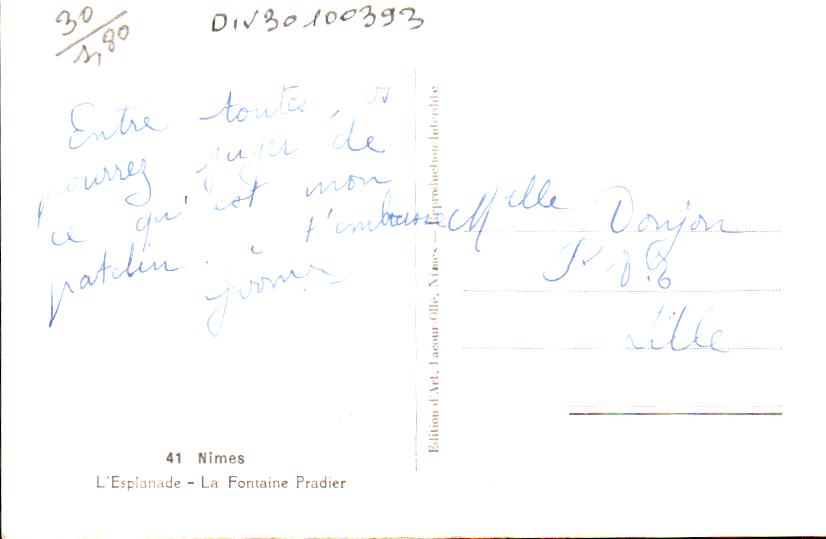 30
DIV30100393
1,80
Entre toutes, vs
pourrez juger de
ce qu'est mon
patelin. Je t'embrasse
Melle Donjon
Lille
Edition d'Art, Lacour-Ollé, Nimes — Reproduction Interdite
41 Nimes
L'Esplanade - La Fontaine Pradier